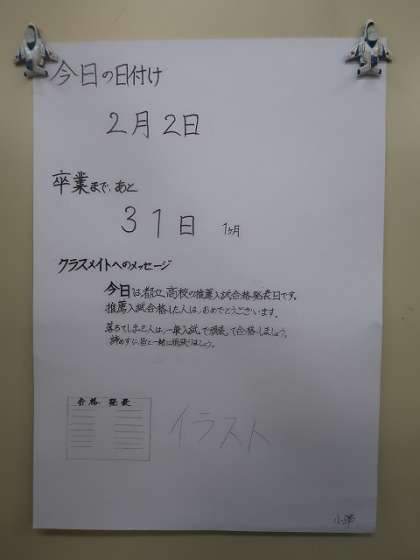 今日の日付け
2月2日
卒業まで、あと
31日 1ヶ月
クラスメイトへのメッセージ
今日は、都立高校の推薦入試合格発表日です。
推薦入試合格した人は、おめでとうございます。
落ちてしまった人は、一般入試で頑張って合格しましょう。
諦めずに、皆と一緒に頑張りましょう。
合格 発表
イラスト